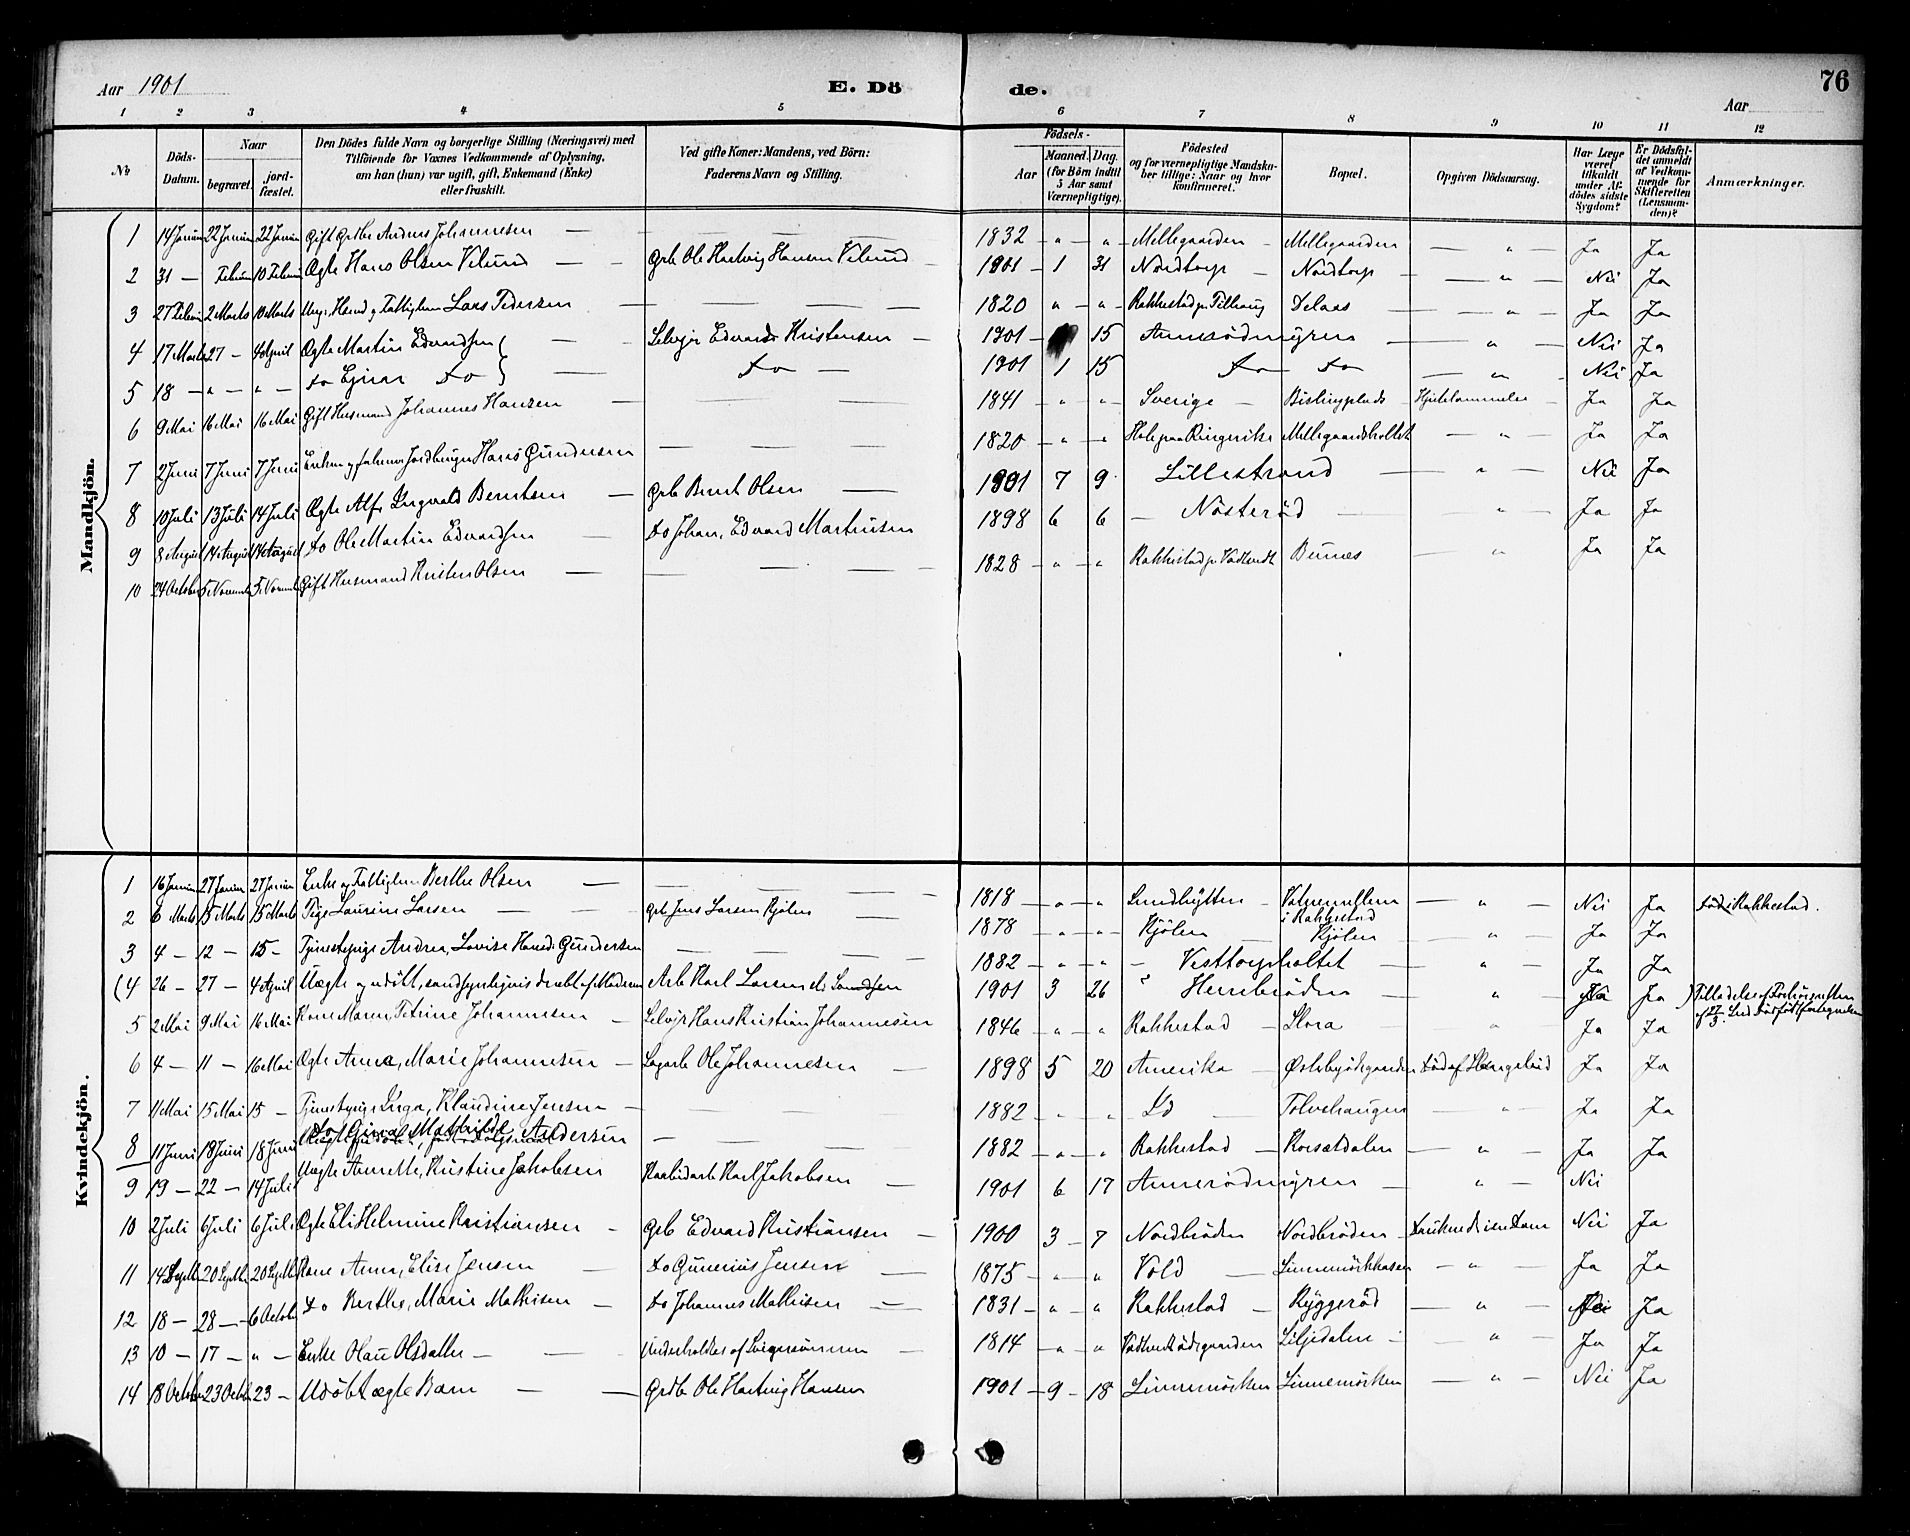 Aar 1901 E. Döde. 76
Aar
1 2 3 4 5 6 7 8 9 10 11 12
No
Döds-Datum.
Naar
begravet.
jord-fæstet.
Den Dödes fulde Navn og borgerlige Stilling (Næringsvei) med
Tilföiende for Voxnes Vedkommende af Oplysning,
om han (hun) var ugift, gift, Enkemand (Enke)
eller fraskilt.
Ved gifte Koner: Mandens, ved Börn:
Faderens Navn og Stilling.
Födsels-
Aar
Maaned. Dag.
(for Börn indtil
5 Aar samt
Værnepligtige).
Födested
og for værnepligtige Mandska-
ber tillige: Naar og hvor
konfirmeret.
Bopæl.
Opgiven Dödsaarsag.
Har Læge
været
tilkaldt
under Af-
dödes sidste
Sygdom?
Er Dödsfal-
det anmeldt
af Vedkom-
mende for
Skifteretten
(Lensman-
den)?
Anmærkninger.
Mandkjön.
1 14 Januar 22 Januar 22 Januar Gift Grdbr Anders Johannesen — — 1832 — " — " — Mellegaarden — Mellegaarden — " — Ja Ja
2 31 — Februar 10 Februar Ægte Hans Olsen Velund — Grb Ole Hartvig Hansen Velund — 1901 — 1 31 Nordtorp — Nordtorp — " — Nei Ja
3 27 Februar 2 Marts 10 Marts Lars Pedersen — — 1820 " — " — Rakkestad Delaas — " — Ja Ja
4 17 Marts 27 — 4 April Ægte Martin Edvardsen — Selvejr Edvard Kristensen — 1901 — 15 Annerødmyren — " — Nei Ja
5 18 — " — " — do Ejnar do — do — 1901 1 15 do do — " — Nei Ja
6 9 Mai 16 Mai 16 Mai Gift Husmand Johannes Hansen — — 1841 — " — " — Sverige — — Ja Ja
7 2 Juni 7 Juni 7 Juni Hans Gundersen — — 1820 — " — " Hole paa Ringerike Mellegaardsholtet — " — Ja Ja
8 10 Juli 13 Juli 14 Juli Ægte Alf Yngvald Berntsen — Grb Bernt Olsen — 1901 7 9 Lillestrand — " — Nei Ja
9 8 August 14 August 14 August do Ole Martin Edvardsen — do Johan Edvard Martinsen 1898 6 6 — Nøsterød — " — Ja Ja
10 24 October 5 Novemb 5 Novemb Gift Husmand Kristen Olsen — — 1828 — " — " Rakkestad Bunes — " — Ja Ja
Kvindekjön.
1 16 Januar 27 Januar 27 Januar Enke og Fattiglem Berthe Olsen — — 1818 — " — " Sundhytten — i Rakkestad — " — Nei Ja Død i Rakkestad.
2 6 Marts 15 Marts 15 Marts Pige Laurine Larsen — Grb Jens Larsen Kjølen — 1878 — " — " — Kjølen — Kjølen — " — Ja Ja
3 4 — 12 — 15 — Tjenestepige Andrea Lovise Gundersen — — 1882 — " — " — Vesttorpholtet — " — Ja Ja
(4 26 — 27 — 4 April Uægte og udøbt, sandsynligvis dræbt af Moderen Arb Karl Larsen 1901 3 26 Herrebrøden — " — Ja) Tilladelse af Forhørsretten af 27/3.
5 2 Mai 9 Mai 16 Mai Kone Maren Petrine Johannesen — Selvejr Hans Kristian Johannesen 1846 — " — " Rakkestad — Skora " Ja Ja
6 4 — 11 — 16 Mai Ægte Anna Marie Johannesen — Ole Johannesen — 1898 5 20 Amerika — Ja Ja
7 11 Mai 15 Mai 15 — Tjenestepige Inga Klaudine Jensen — — 1882 — " — " Id — Tolvehaugen — " — Ja Ja
8 11 Juni 18 Juni 18 Juni do Gina Mathilde Andersen — — 1882 — " — " Rakkestad — Korsetdalen — " — Ja Ja
9 19 — 22 — 14 Juli Uægte Anette Kristine Jakobsen Karl Jakobsen — 1901 6 17 Annerødmyren — " — Nei
10 2 Juli 6 Juli 6 Juli Ægte Eli Helmine Kristiansen — Grb Edvard Kristiansen — 1900 3 — 7 Nordbrøden Nordbrøden — Druknet i en Dam Nei Ja
11 14 Septb 20 Septb 20 Septb Kone Anna Elise Jensen — do Gunerius Jensen — 1875 — " — " Vold — — " — Ja Ja
12 18 — 28 — 6 October do Berthe Marie Mathisen — do Johannes Mathisen — 1831 — " — " Rakkestad — Ryggerød — " — Nei Ja
13 10 — 17 — " — Enke Olau Olsdatter — Underholdes af Svigersønnen — 1814 — " — " Liljedalen — " — Ja Ja
14 18 October 23 Octob 23 — Udøbt ægte Barn — Grdb Ole Hartvig Hansen 1901 — 9 — 18 Linnemørken Linnemørken — " — Nei Ja